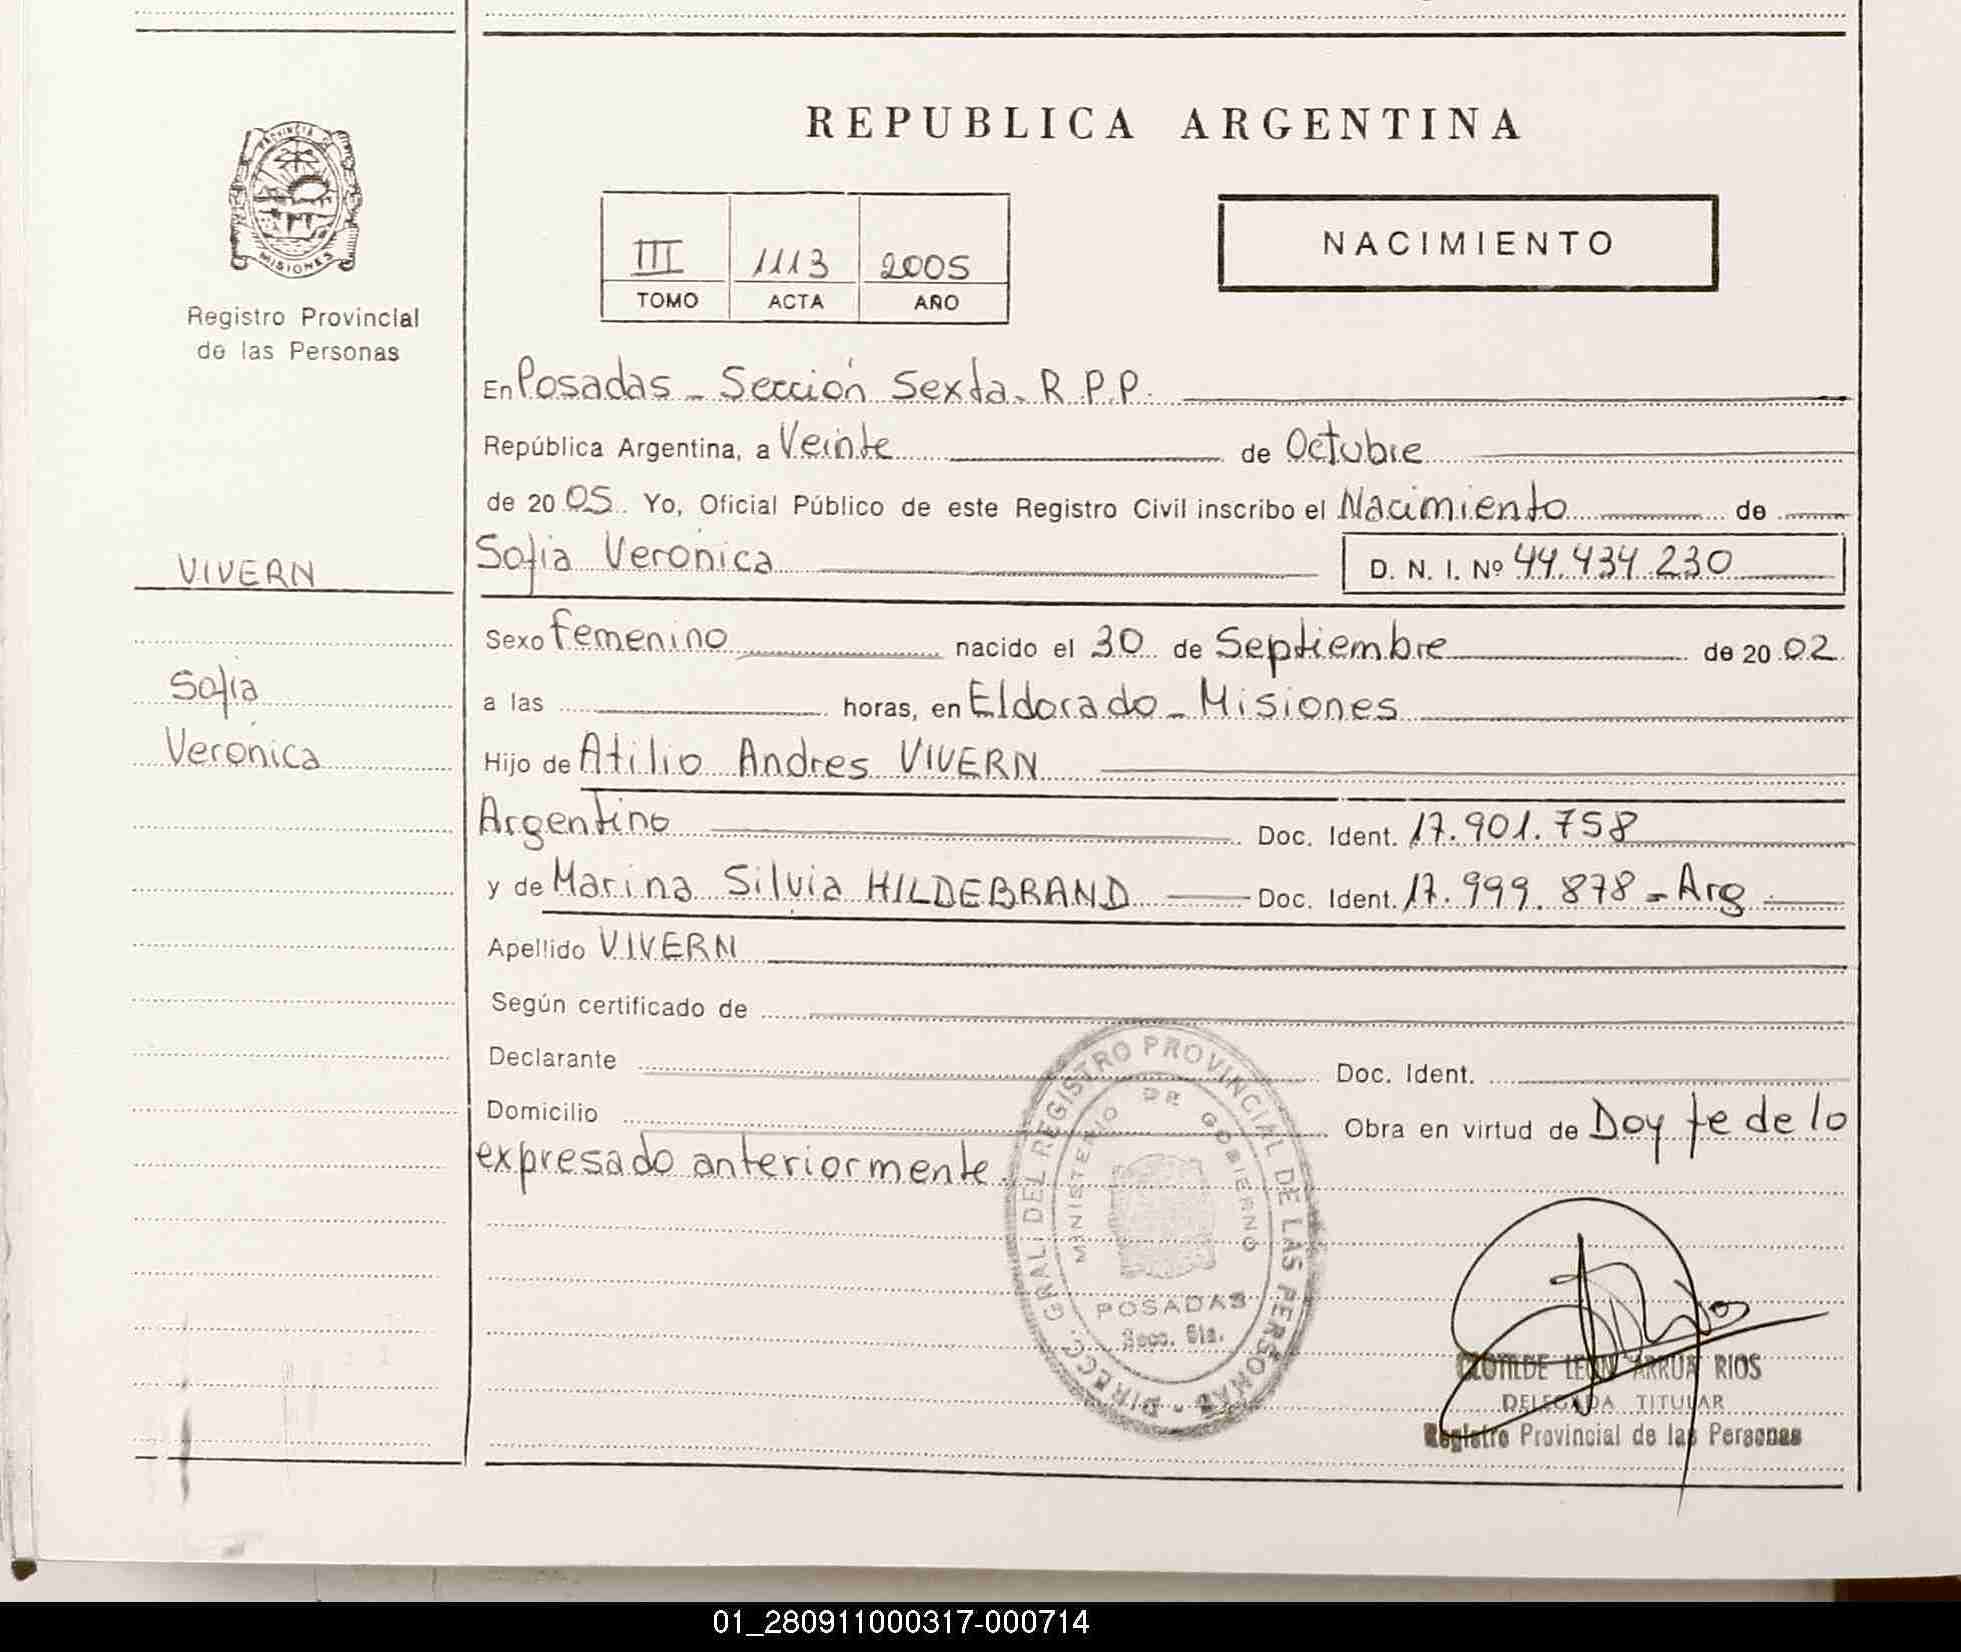 REPUBLICA ARGENTINA
PROVINCIA DE
MISIONES
Registro Provincial
de las Personas
III 1113 2005
TOMO ACTA AÑO
NACIMIENTO
En Posadas - Sección Sexta. R.P.P.
República Argentina, a Veinte de Octubre
de 20 05. Yo, Oficial Público de este Registro Civil inscribo el Nacimiento de
VIVERN
Sofia Verónica D. N. I. Nº 44.434.230
Sexo femenino nacido el 30 de Septiembre de 20 02
Sofia
a las horas, en Eldorado - Misiones
Verónica
Hijo de Atilio Andres VIVERN
Argentino Doc. Ident. 17.901.758
y de Marina Silvia HILDEBRAND Doc. Ident. 17.999.878 - Arg
Apellido VIVERN
Según certificado de
Declarante Doc. Ident.
Domicilio Obra en virtud de Doy fe de lo
expresado anteriormente.
DIRECC. GRAL. DEL REGISTRO PROVINCIAL DE LAS PERSONAS
MINISTERIO DE GOBIERNO
POSADAS
Secc. 6ta.
CLOTILDE LEON ARRUA RIOS
DELEGADA TITULAR
Registro Provincial de las Personas
01_280911000317-000714